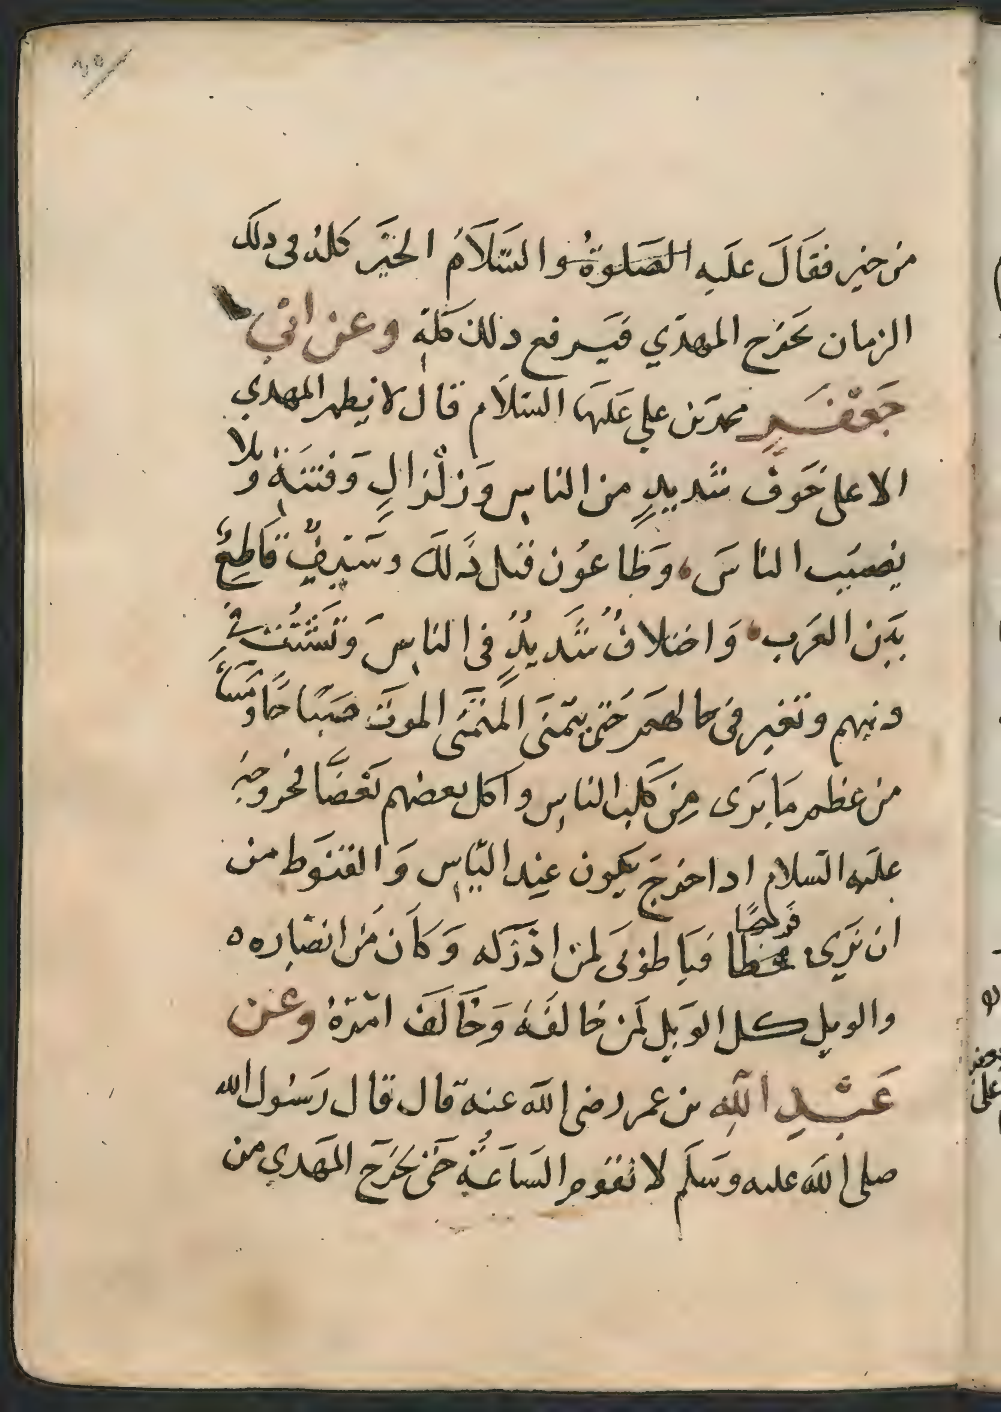 ٣٥
من خير فقَالَ علَيه الصَلوةُ والسَّلَامُ الخَيَر كلهُ فى ذلكَ
الزمان يخَرج المهدّي فيَرفع ذلك كلهِ وعن ابي
جَعْفَرٍ محمد بن علي عَلَيهَا السّلَام قال لا يظهر المهدي
الا على خَوفٍ شَديدٍ من الناسِ وَزلْزالٍ وَفتنَةٍ وبلا
يصيَب الناسَ وَطاعُون قبل ذَلكَ وسَيفٌ قاطِعٌ
بيَن العَرب وَاختلافٌ شَديدٌ فى الناسِ وَتَشَتُت في
دينهم وتغير فى حالهمَ حَتى يتمنَى المتَمَنّى الموتَ صَبَاحًا ومَسَاءً
من عظم مَا يرَى مِن كَلَب الناسِ واكل بعضهم بَعْضًا فخروجه
علَيه السّلام اذا خرَجَ يكون عِند اليَاسِ وَالقنوَط من
ان نرَى فَرجًا فيَا طوبَى لمن ادْرَكه وَكاَن مَن انصَاره ه
والويل كل الوَيل لمَن خالفَهُ وَخَالَفَ امْرَهُ وعَن
عَبْدِ اللّهِ بن عمر رضى اللّه عنه قال قال رَسُول الله
صلى اللّه عليه وسَلَم لا تقوم السَاعَةُ حَتى يَخرَج المَهدي من